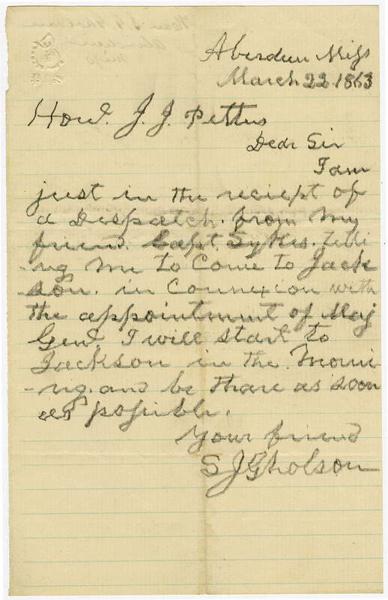 Aberdeen Miss
March 22 1863
Hon. J. J. Pettus
Dear Sir
I am
just in the reciept of
a Despatch. from my
friend. Capt. Sykes. telli
ng me to Come to Jack
-son. in Connexion with
the appointment of Maj
Genl. I will start to
Jackson in the morni
-ng. and be thare as soon
as possible.
Your friend
S J Gholson